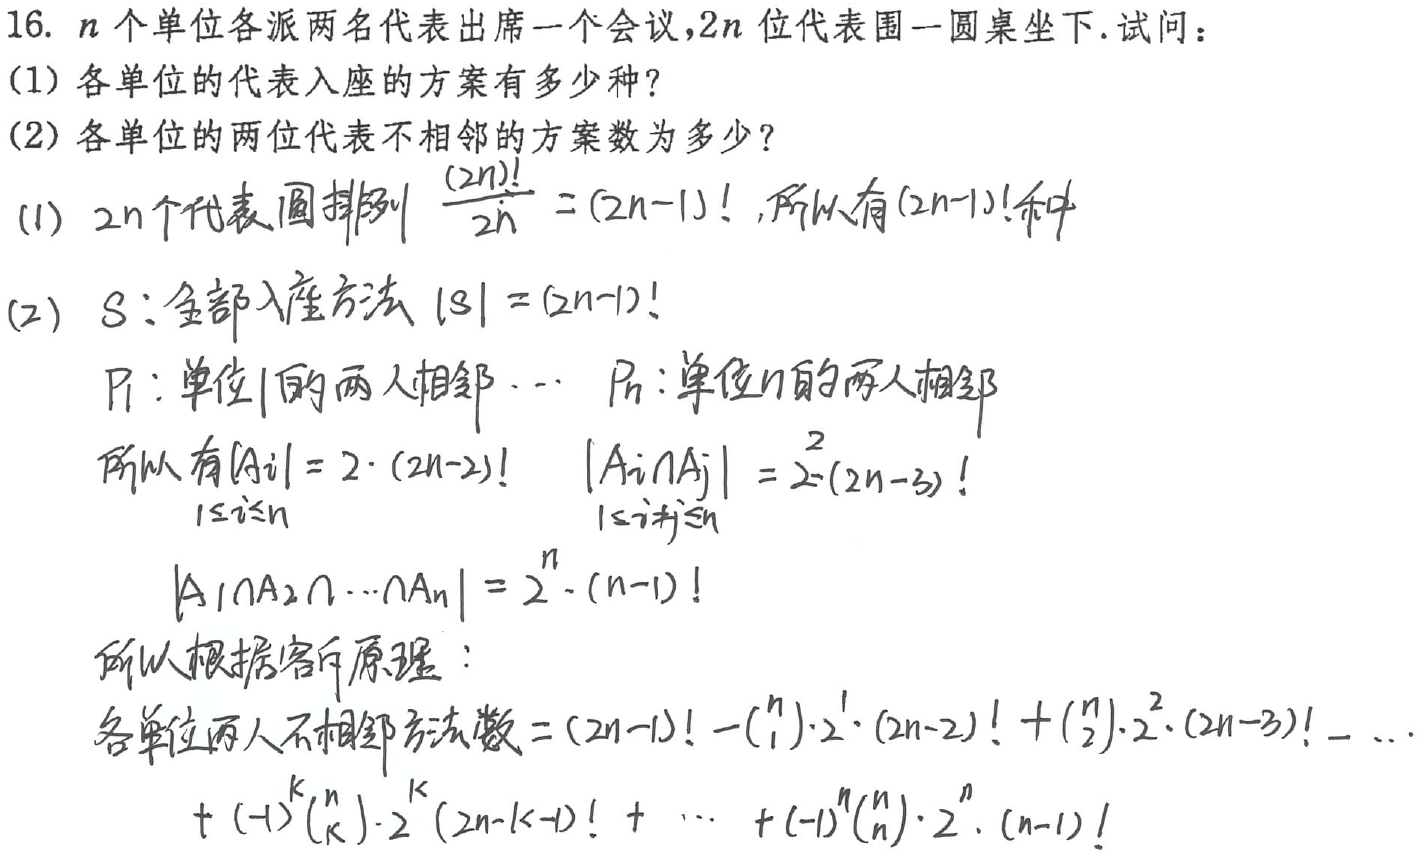 16. n 个单位各派两名代表出席一个会议,2n 位代表围一圆桌坐下.试问:
(1) 各单位的代表入座的方案有多少种?
(2) 各单位的两位代表不相邻的方案数为多少?
(1) 2n个代表圆排列 (2n)!/2n = (2n-1)! ,所以有(2n-1)!种
(2) S:全部入座方法 |S| = (2n-1)!
P1:单位1的两人相邻 … Pn:单位n的两人相邻
所以有|Ai| = 2·(2n-2)! |Ai∩Aj| = 2²·(2n-3)!
1≤i≤n 1≤i≠j≤n
|A1∩A2∩…∩An| = 2ⁿ·(n-1)!
所以根据容斥原理:
各单位两人不相邻方法数 = (2n-1)! - (n 1)·2¹·(2n-2)! + (n 2)·2²·(2n-3)! - …
+ (-1)ᵏ(n k)·2ᵏ(2n-k-1)! + … + (-1)ⁿ(n n)·2ⁿ·(n-1)!